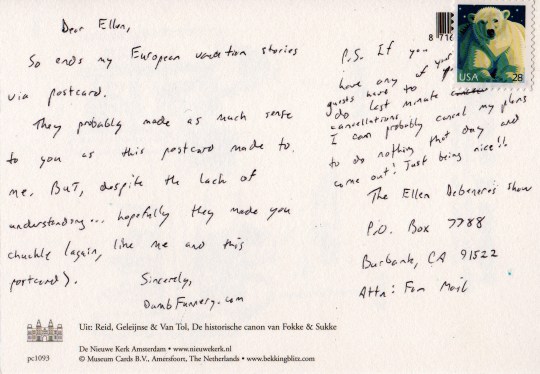 Dear Ellen,
So ends my European vacation stories
via postcard.
They probably made as much sense
to you as this postcard made to
me. But, despite the lack of
understanding... hopefully they made you
chuckle (again, like me and this
postcard).
Sincerely,
DumbFunnery.com
P.S. If you
have any of your
guests have to
do last minute
cancellations,
I can probably cancel my plans
to do nothing that day and
come out! Just being nice!!
The Ellen Degeneres Show
P.O. Box 7788
Burbank, CA 91522
Attn: Fan Mail
8 716
USA
28
Uit: Reid, Geleijnse & Van Tol, De historische canon van Fokke & Sukke
De Nieuwe Kerk Amsterdam • www.nieuwekerk.nl
pc1093
© Museum Cards B.V., Amersfoort, The Netherlands • www.bekkingblitz.com